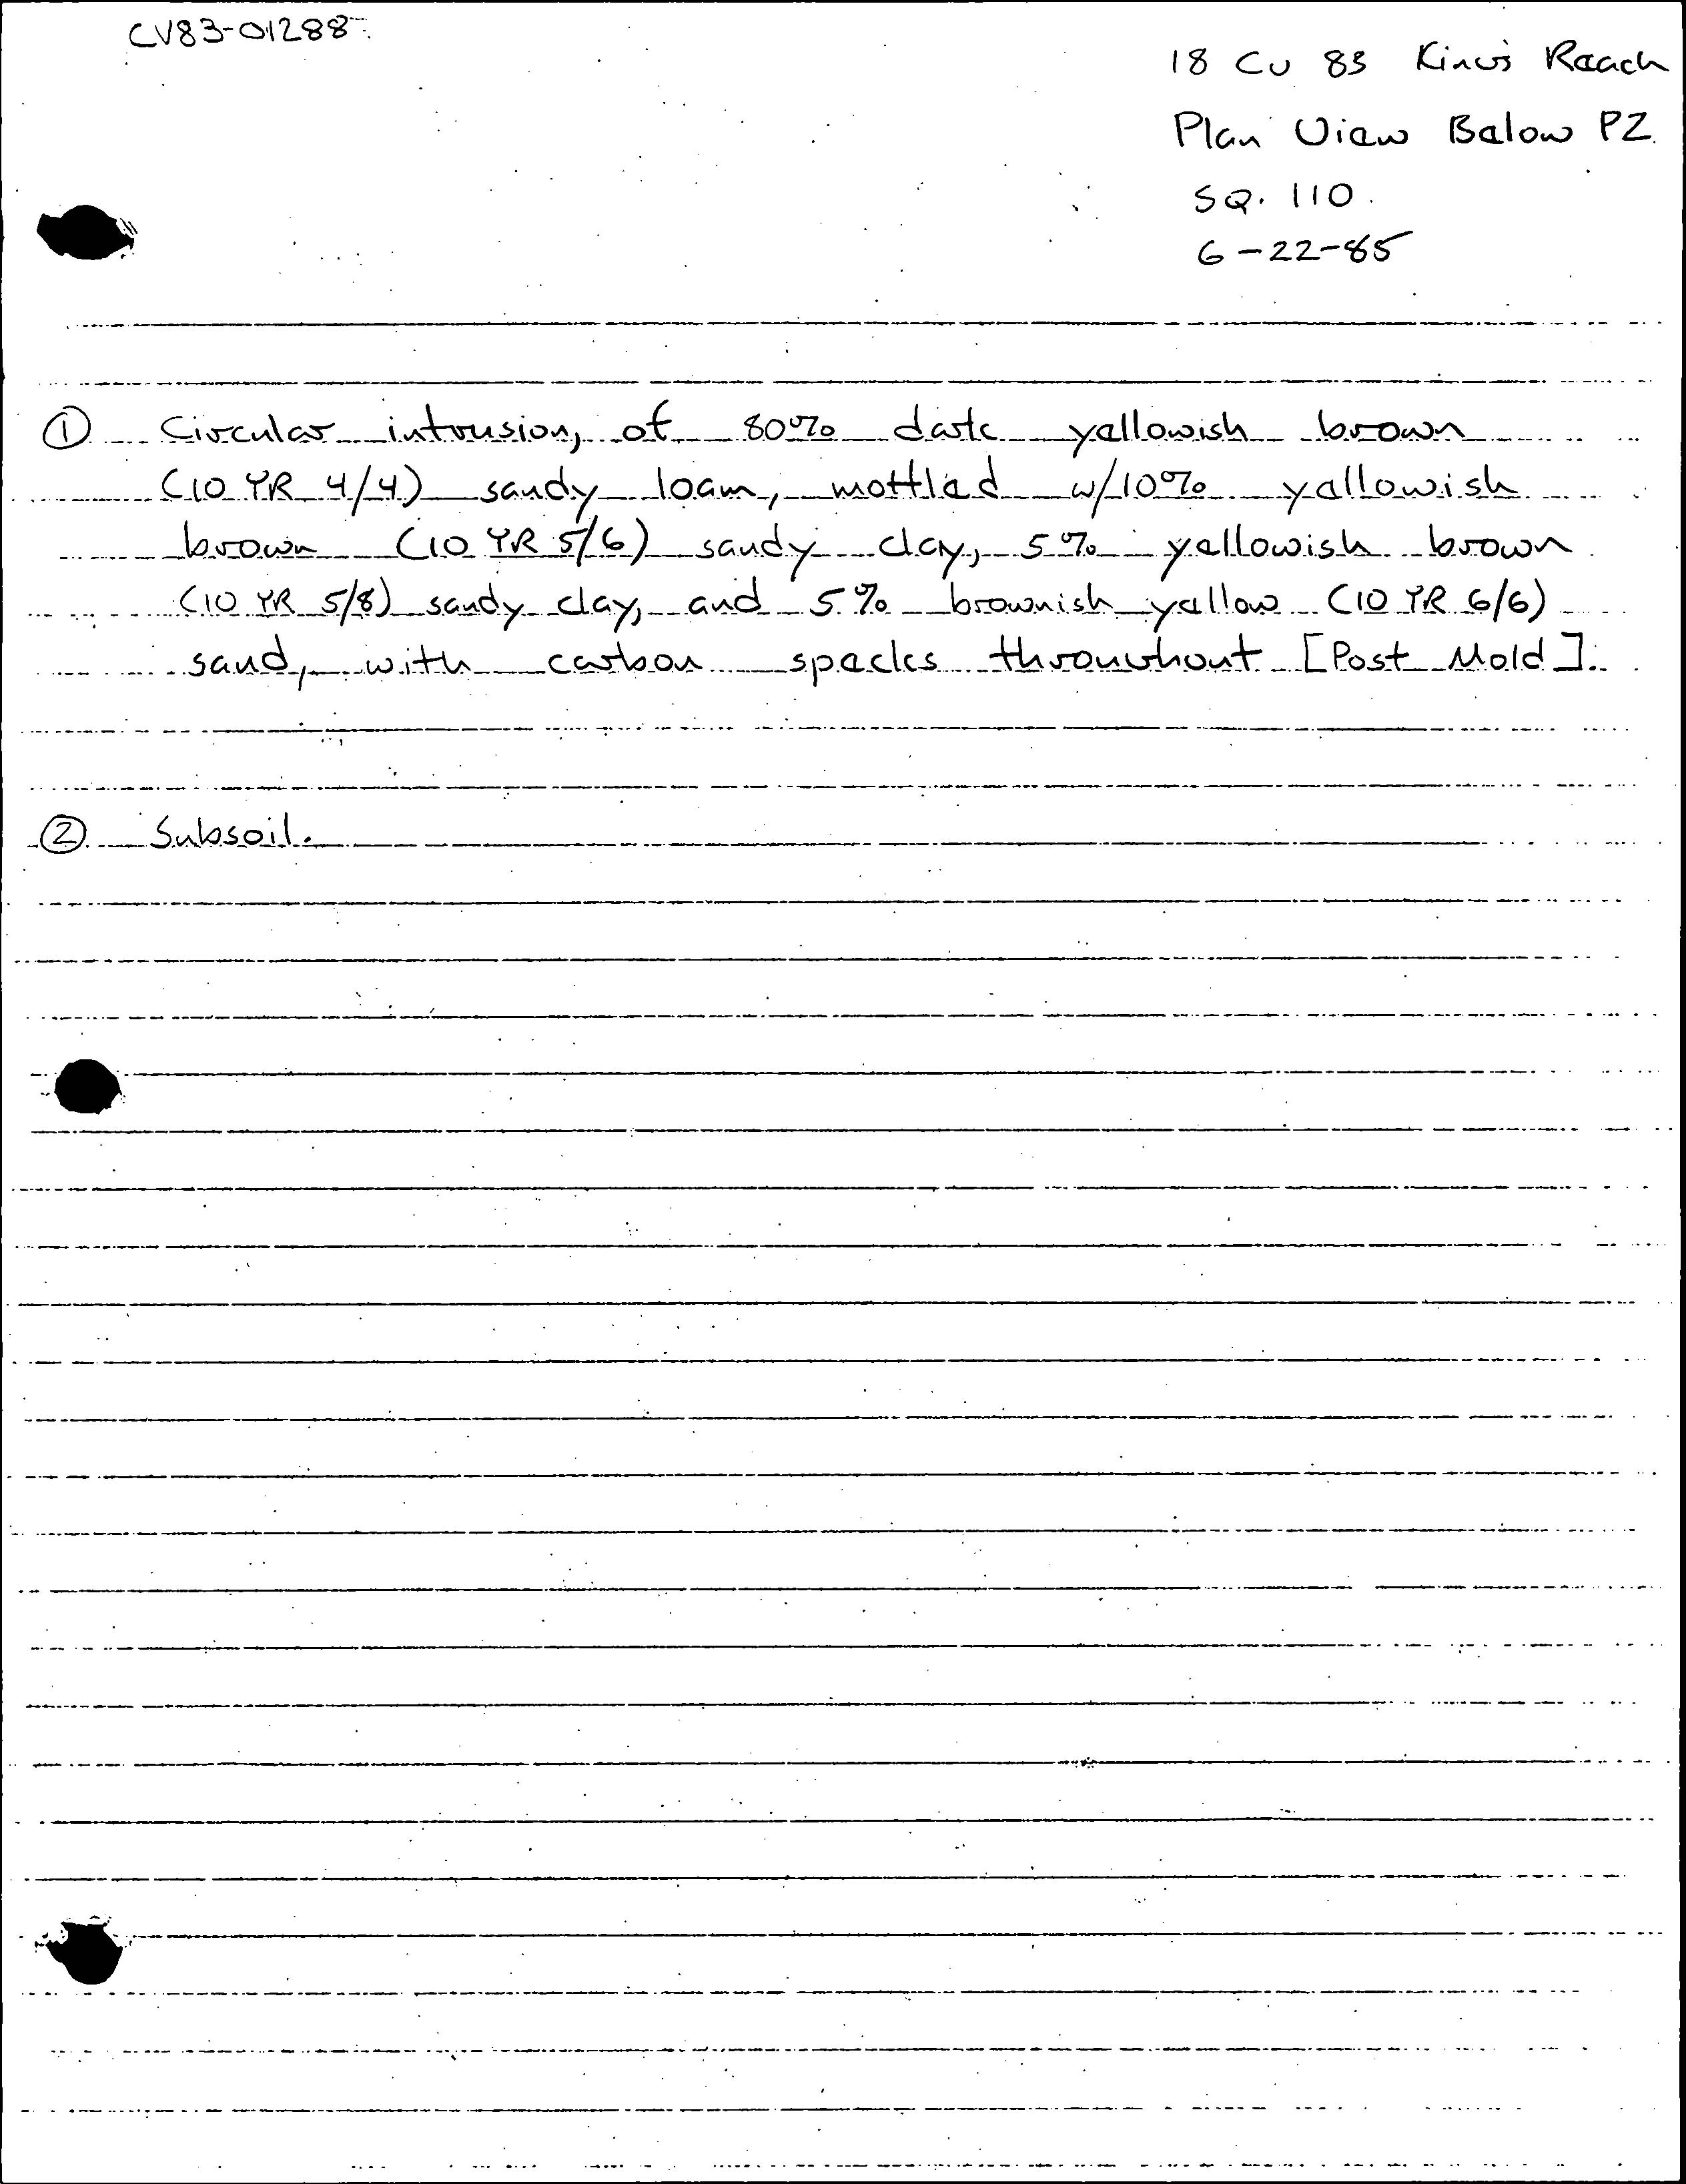 CV83-01288
18 CV 83 King's Reach
Plan View Below PZ
SQ. 110
6-22-85
① Circular intrusion, of 80% dark yellowish brown
(10 YR 4/4) sandy loam, mottled w/10% yellowish
brown (10 YR 5/6) sandy clay, 5% yellowish brown
(10 YR 5/8) sandy clay, and 5% brownish yellow (10 YR 6/6)
sand, with carbon specks throughout [Post Mold].
② Subsoil.